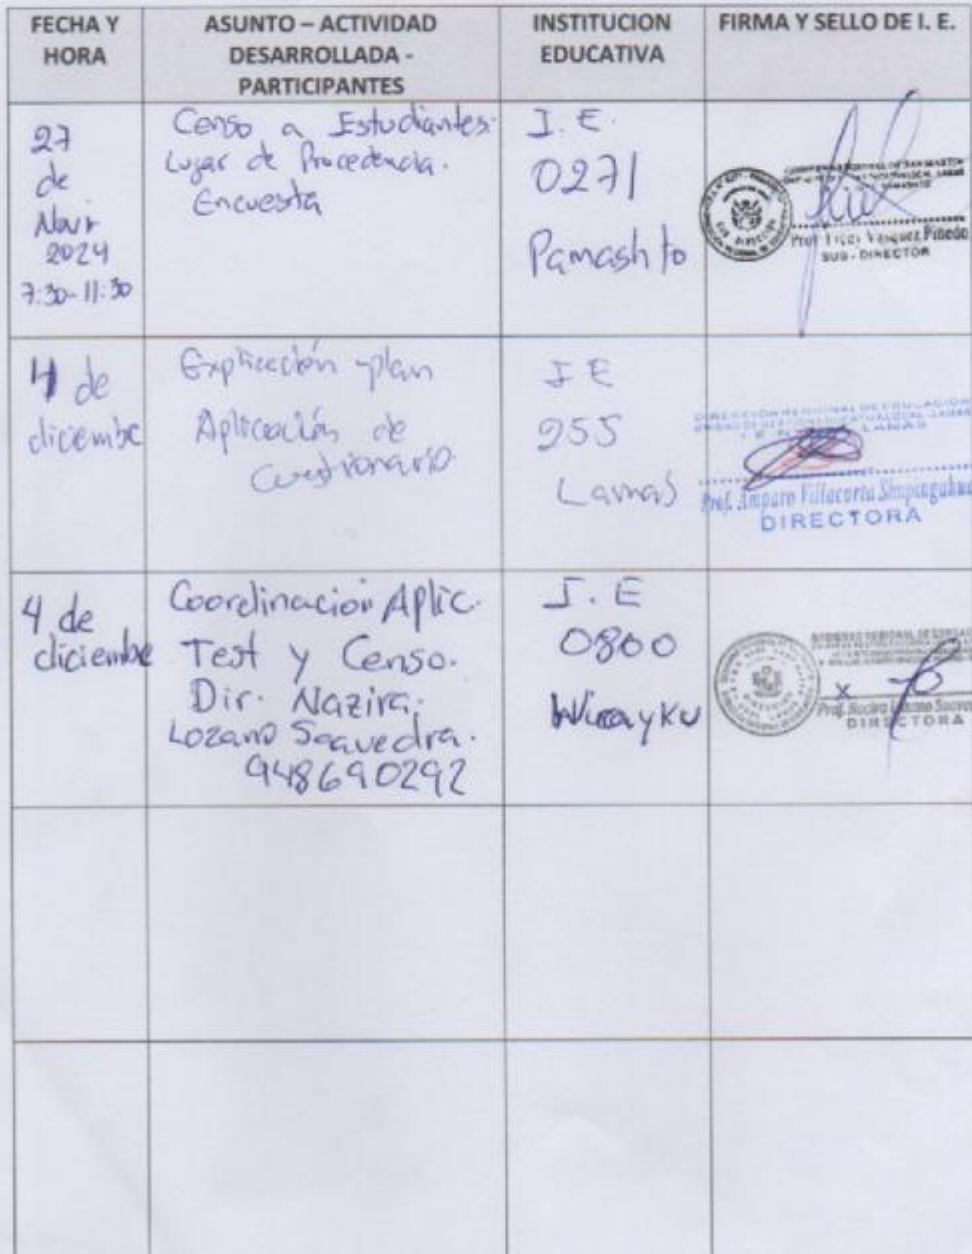 FECHA Y HORA
ASUNTO – ACTIVIDAD DESARROLLADA - PARTICIPANTES
INSTITUCION EDUCATIVA
FIRMA Y SELLO DE I. E.
27
de
Novr
2024
7:30-11:30
Censo a Estudiantes.
Lugar de Procedencia.
Encuesta
I. E.
0271
Pamashto
Vasquez Pinedo
SUB - DIRECTOR
4 de
diciembre
Explicación plan
Aplicación de
Cuestionario
I E
255
Lamas
Prof. Amparo Villacorta
DIRECTORA
4 de
diciembre
Coordinacion Aplic.
Test y Censo.
Dir. Nazira.
Lozano Saavedra.
948690292
I. E
0800
Wayku
DIRECTORA